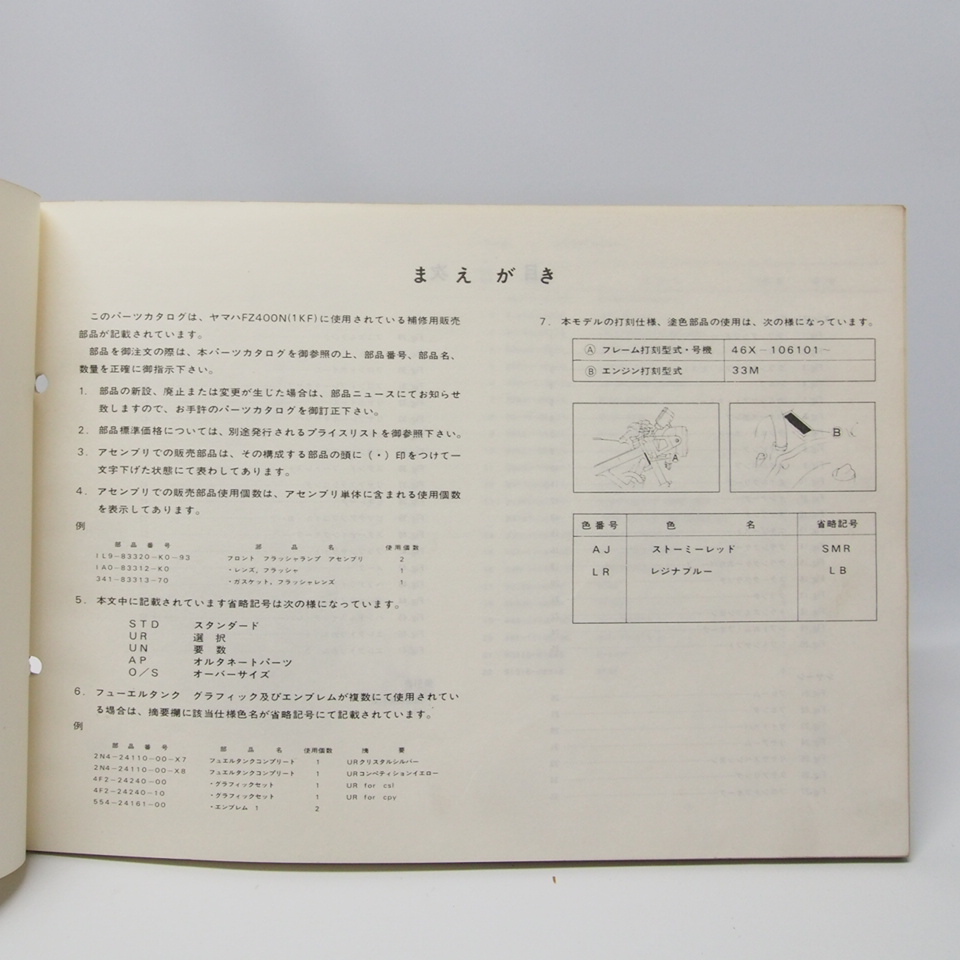 まえがき
このパーツカタログは、ヤマハFZ400N(1KF)に使用されている補修用販売
部品が記載されています。
部品を御注文の際は、本パーツカタログを御参照の上、部品番号、部品名、
数量を正確に御指示下さい。
1. 部品の新設、廃止または変更が生じた場合は、部品ニュースにてお知らせ
致しますので、お手許のパーツカタログを御訂正下さい。
2. 部品標準価格については、別途発行されるプライスリストを御参照下さい。
3. アセンブリでの販売部品は、その構成する部品の頭に(・)印をつけて一
文字下げた状態にて表わしてあります。
4. アセンブリでの販売部品使用個数は、アセンブリ単体に含まれる使用個数
を表示してあります。
例
部品番号 部品名 使用個数
1L9-83320-K0-93 フロント フラッシャランプ アセンブリ 2
1A0-83312-K0 ・レンズ, フラッシャ 1
341-83313-70 ・ガスケット, フラッシャレンズ 1
5. 本文中に記載されています省略記号は次の様になっています。
STD スタンダード
UR 選択
UN 要数
AP オルタネートパーツ
O/S オーバーサイズ
6. フューエルタンク グラフィック及びエンブレムが複数にて使用されてい
る場合は、摘要欄に該当仕様色名が省略記号にて記載されています。
例
部品番号 部品名 使用個数 摘要
2N4-24110-00-X7 フュエルタンクコンプリート 1 URクリスタルシルバー
2N4-24110-00-X8 フュエルタンクコンプリート 1 URコンペティションイエロー
4F2-24240-00 ・グラフィックセット 1 UR for csl
4F2-24240-10 ・グラフィックセット 1 UR for cpy
554-24161-00 ・エンブレム 1 2
7. 本モデルの打刻仕様、塗色部品の使用は、次の様になっています。
Ⓐ フレーム打刻型式・号機 46X-106101~
Ⓑ エンジン打刻型式 33M
A
B
色番号 色名 省略記号
AJ ストーミーレッド SMR
LR レジナブルー LB